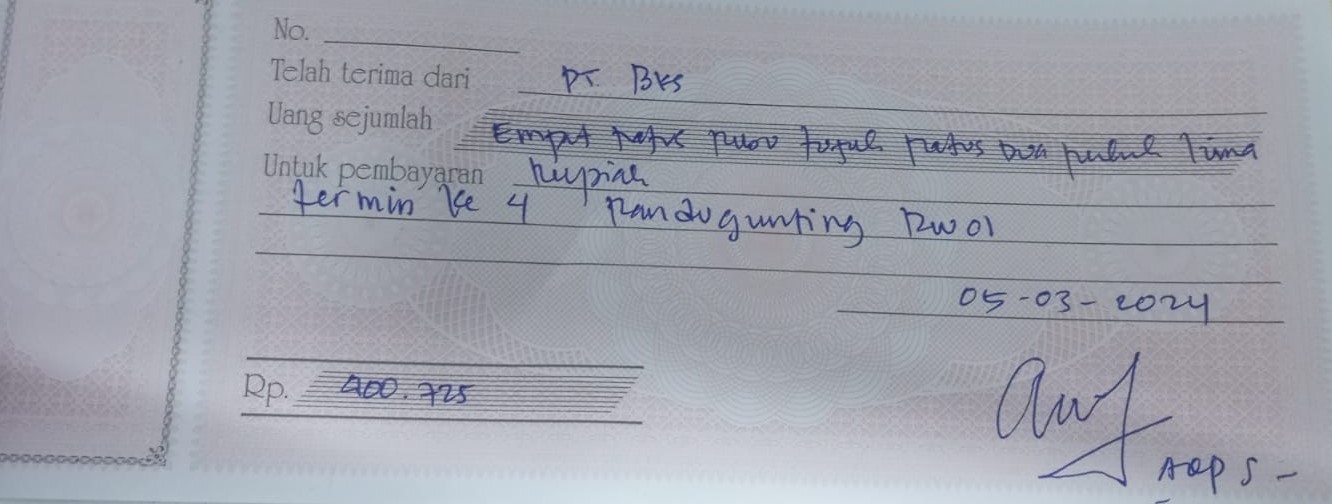 No.
Telah terima dari PT. BKS
Uang sejumlah Empat ratus ribu tujuh ratus dua puluh lima
Untuk pembayaran Rupiah
termin ke 4 Randugunting RW 01
05-03-2024
Rp. 400.725